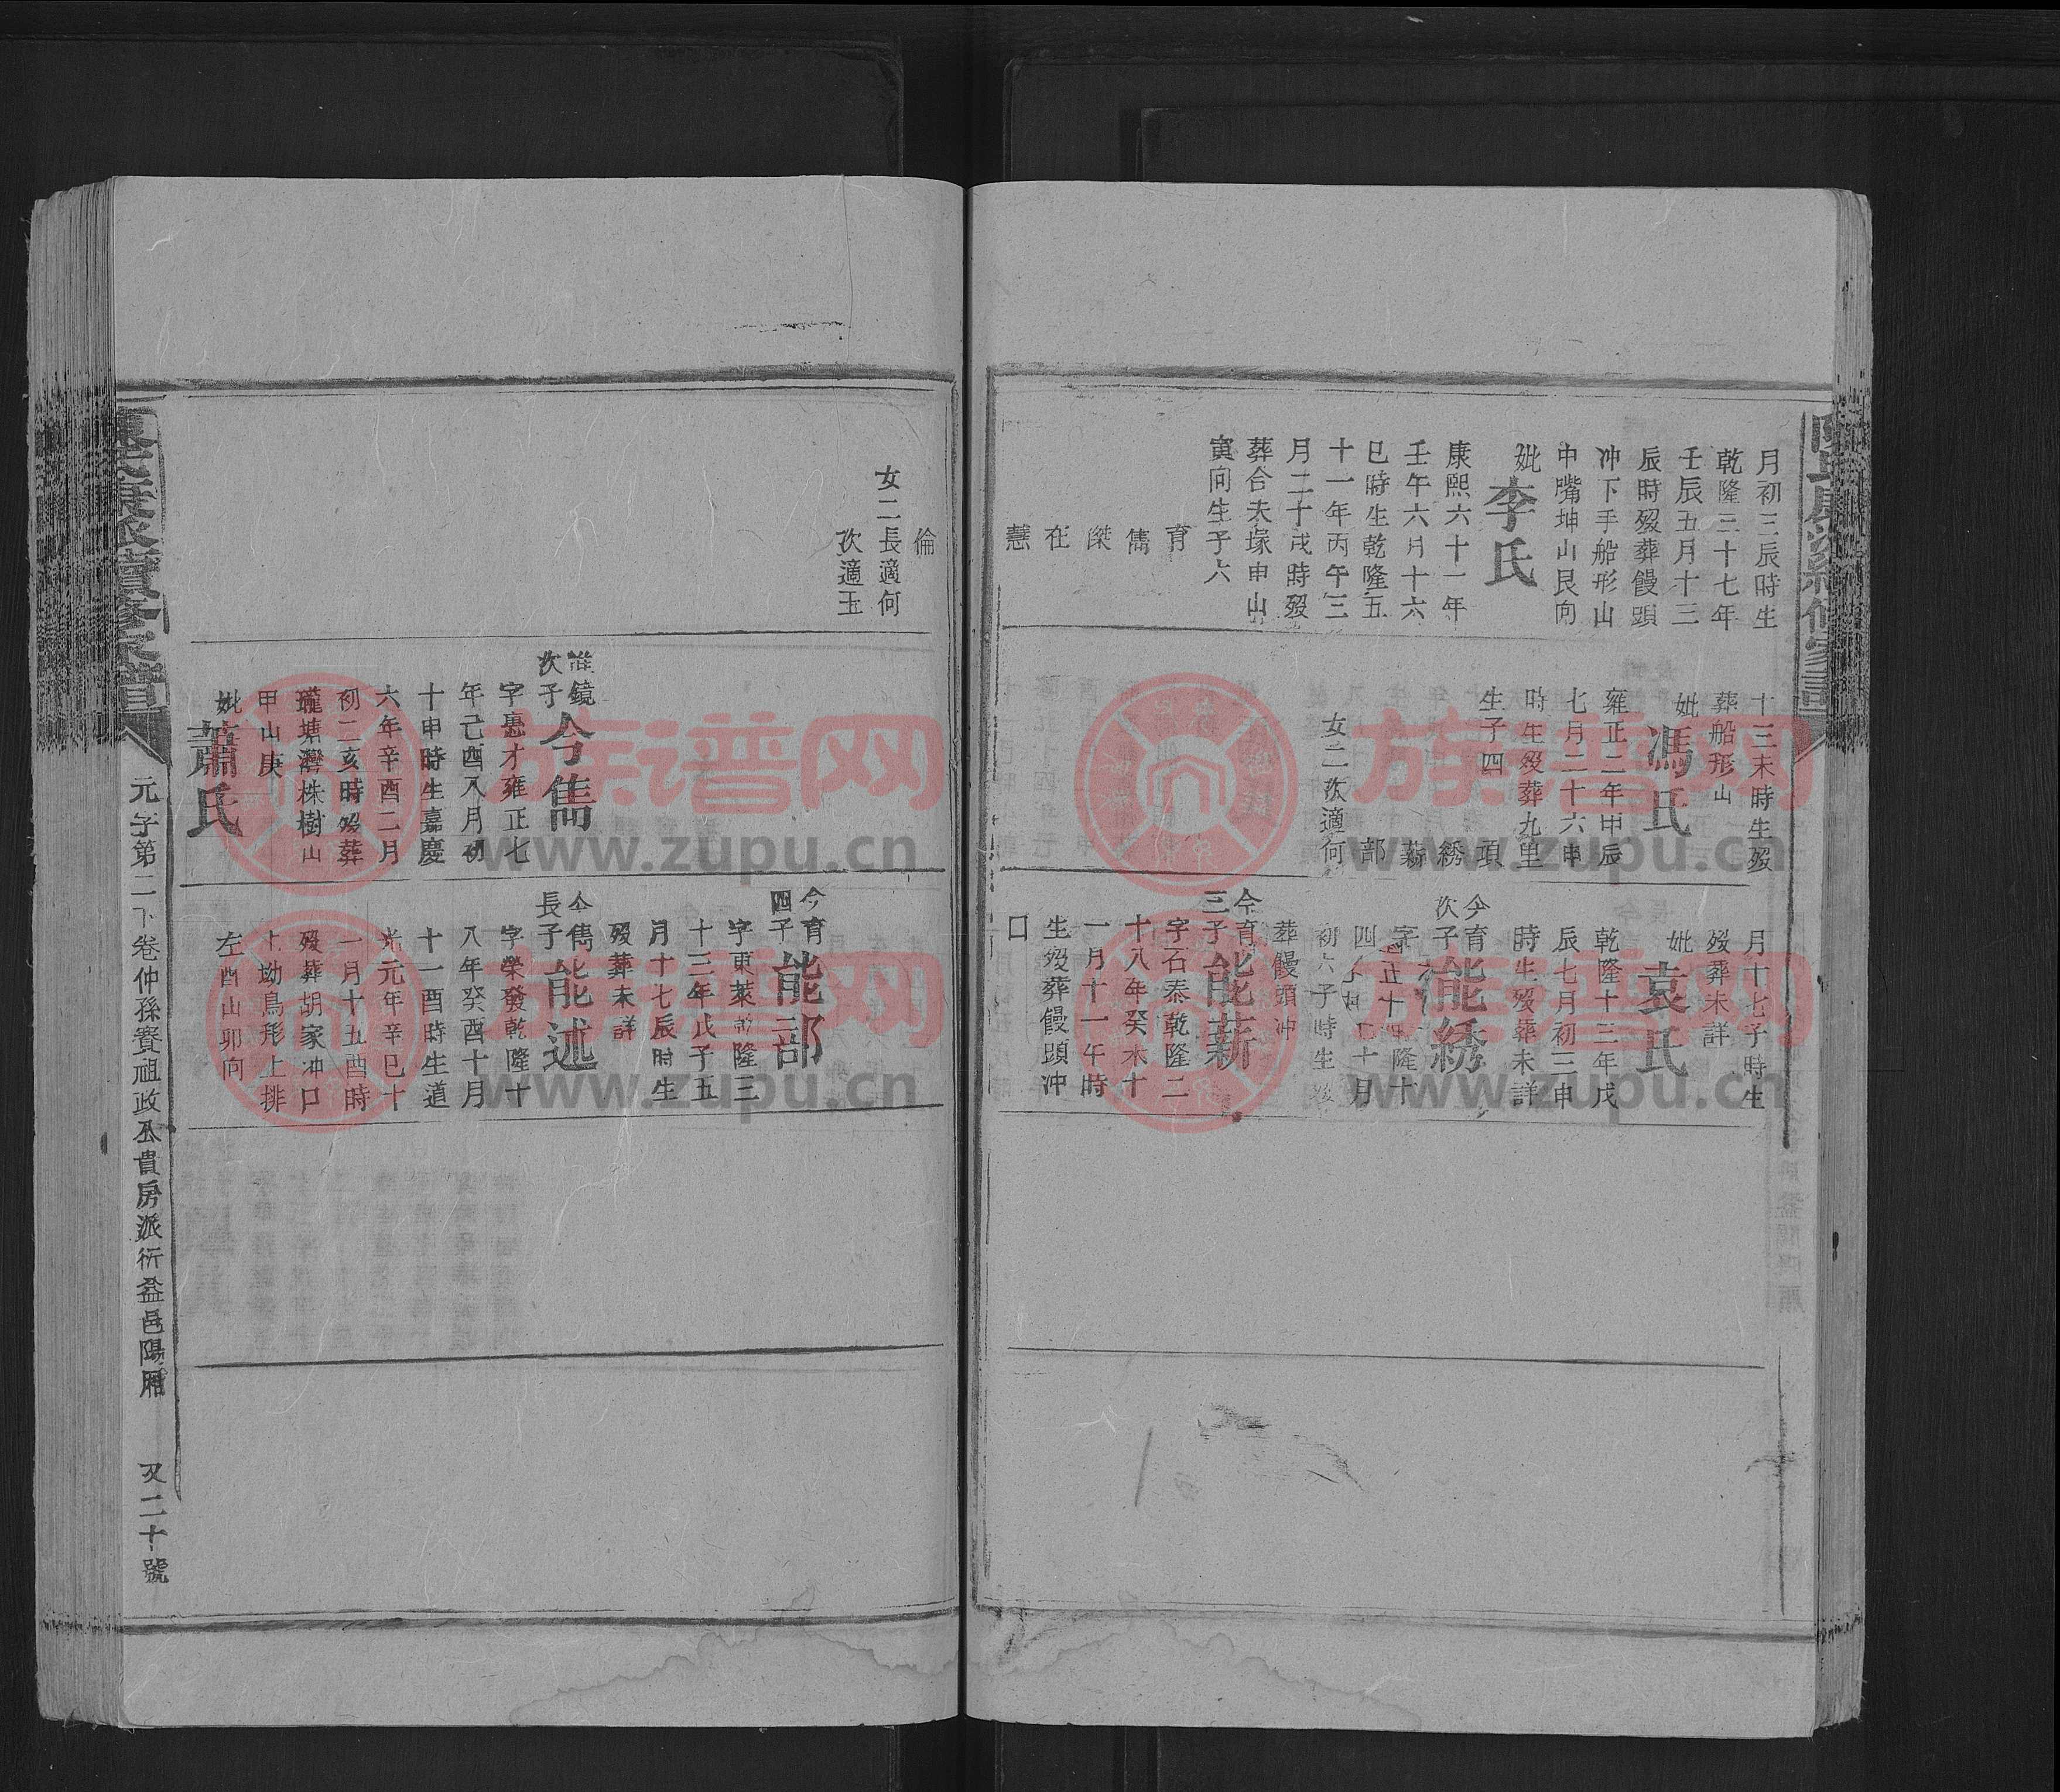 月初三辰時生
乾隆三十七年
壬辰五月十三
辰時歿葬饅頭
冲下手船形山
中嘴坤山艮向
妣李氏
康熙六十一年
壬午六月十六
巳時生乾隆五
十一年丙午三
月二十戌時歿
葬合夫塚申山
寅向生子六
育
雋
傑
在
慧
十三未時生歿
葬船形山
妣馮氏
雍正二年甲辰
七月二十六申
時生歿葬九里
生子四
項
綉
薪
部
女二次適何
月十七子時生
歿葬未詳
妣袁氏
乾隆十三年戊
辰七月初三申
時生歿葬未詳
今育
次子
能綉
初六子時生
葬饅頭冲
今育
三子
能薪
字石泰乾隆二
十八年癸未十
一月十一午時
生歿葬饅頭冲
口
倫
女二長適何
次適玉
鏡
次子
今雋
字憲才雍正七
年己酉八月初
十申時生嘉慶
六年辛酉二月
初二亥時歿葬
瓏塘灣株樹山
甲山庚
妣蕭氏
今育
四子
能部
字東萊乾隆三
十三年戊子五
月十七辰時生
歿葬未詳
今雋
長子
能述
字榮發乾隆十
八年癸酉十月
十一酉時生道
光元年辛巳十
一月十五酉時
歿葬胡家冲口
土坳鳥形上排
左酉山卯向
續修家譜
元子第二下卷仲孫賽祖政公貴房派衍益邑陽
又二十號
族谱网
www.zupu.cn
族谱网
www.zupu.cn
族谱网
www.zupu.cn
族谱网
www.zupu.cn